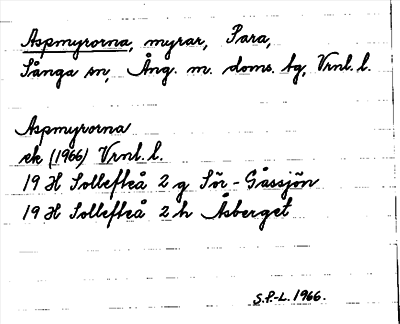 Aspmyrorna, myrar, Para,
Sånga sn, Ång. m. doms. bg, Vrnl. l.
Aspmyrorna
ek (1966) Vrnl. l.
19 H Sollefteå 2 g Sör-Gåssjön
19 H Sollefteå 2 h Åsberget
S.P-L. 1966.